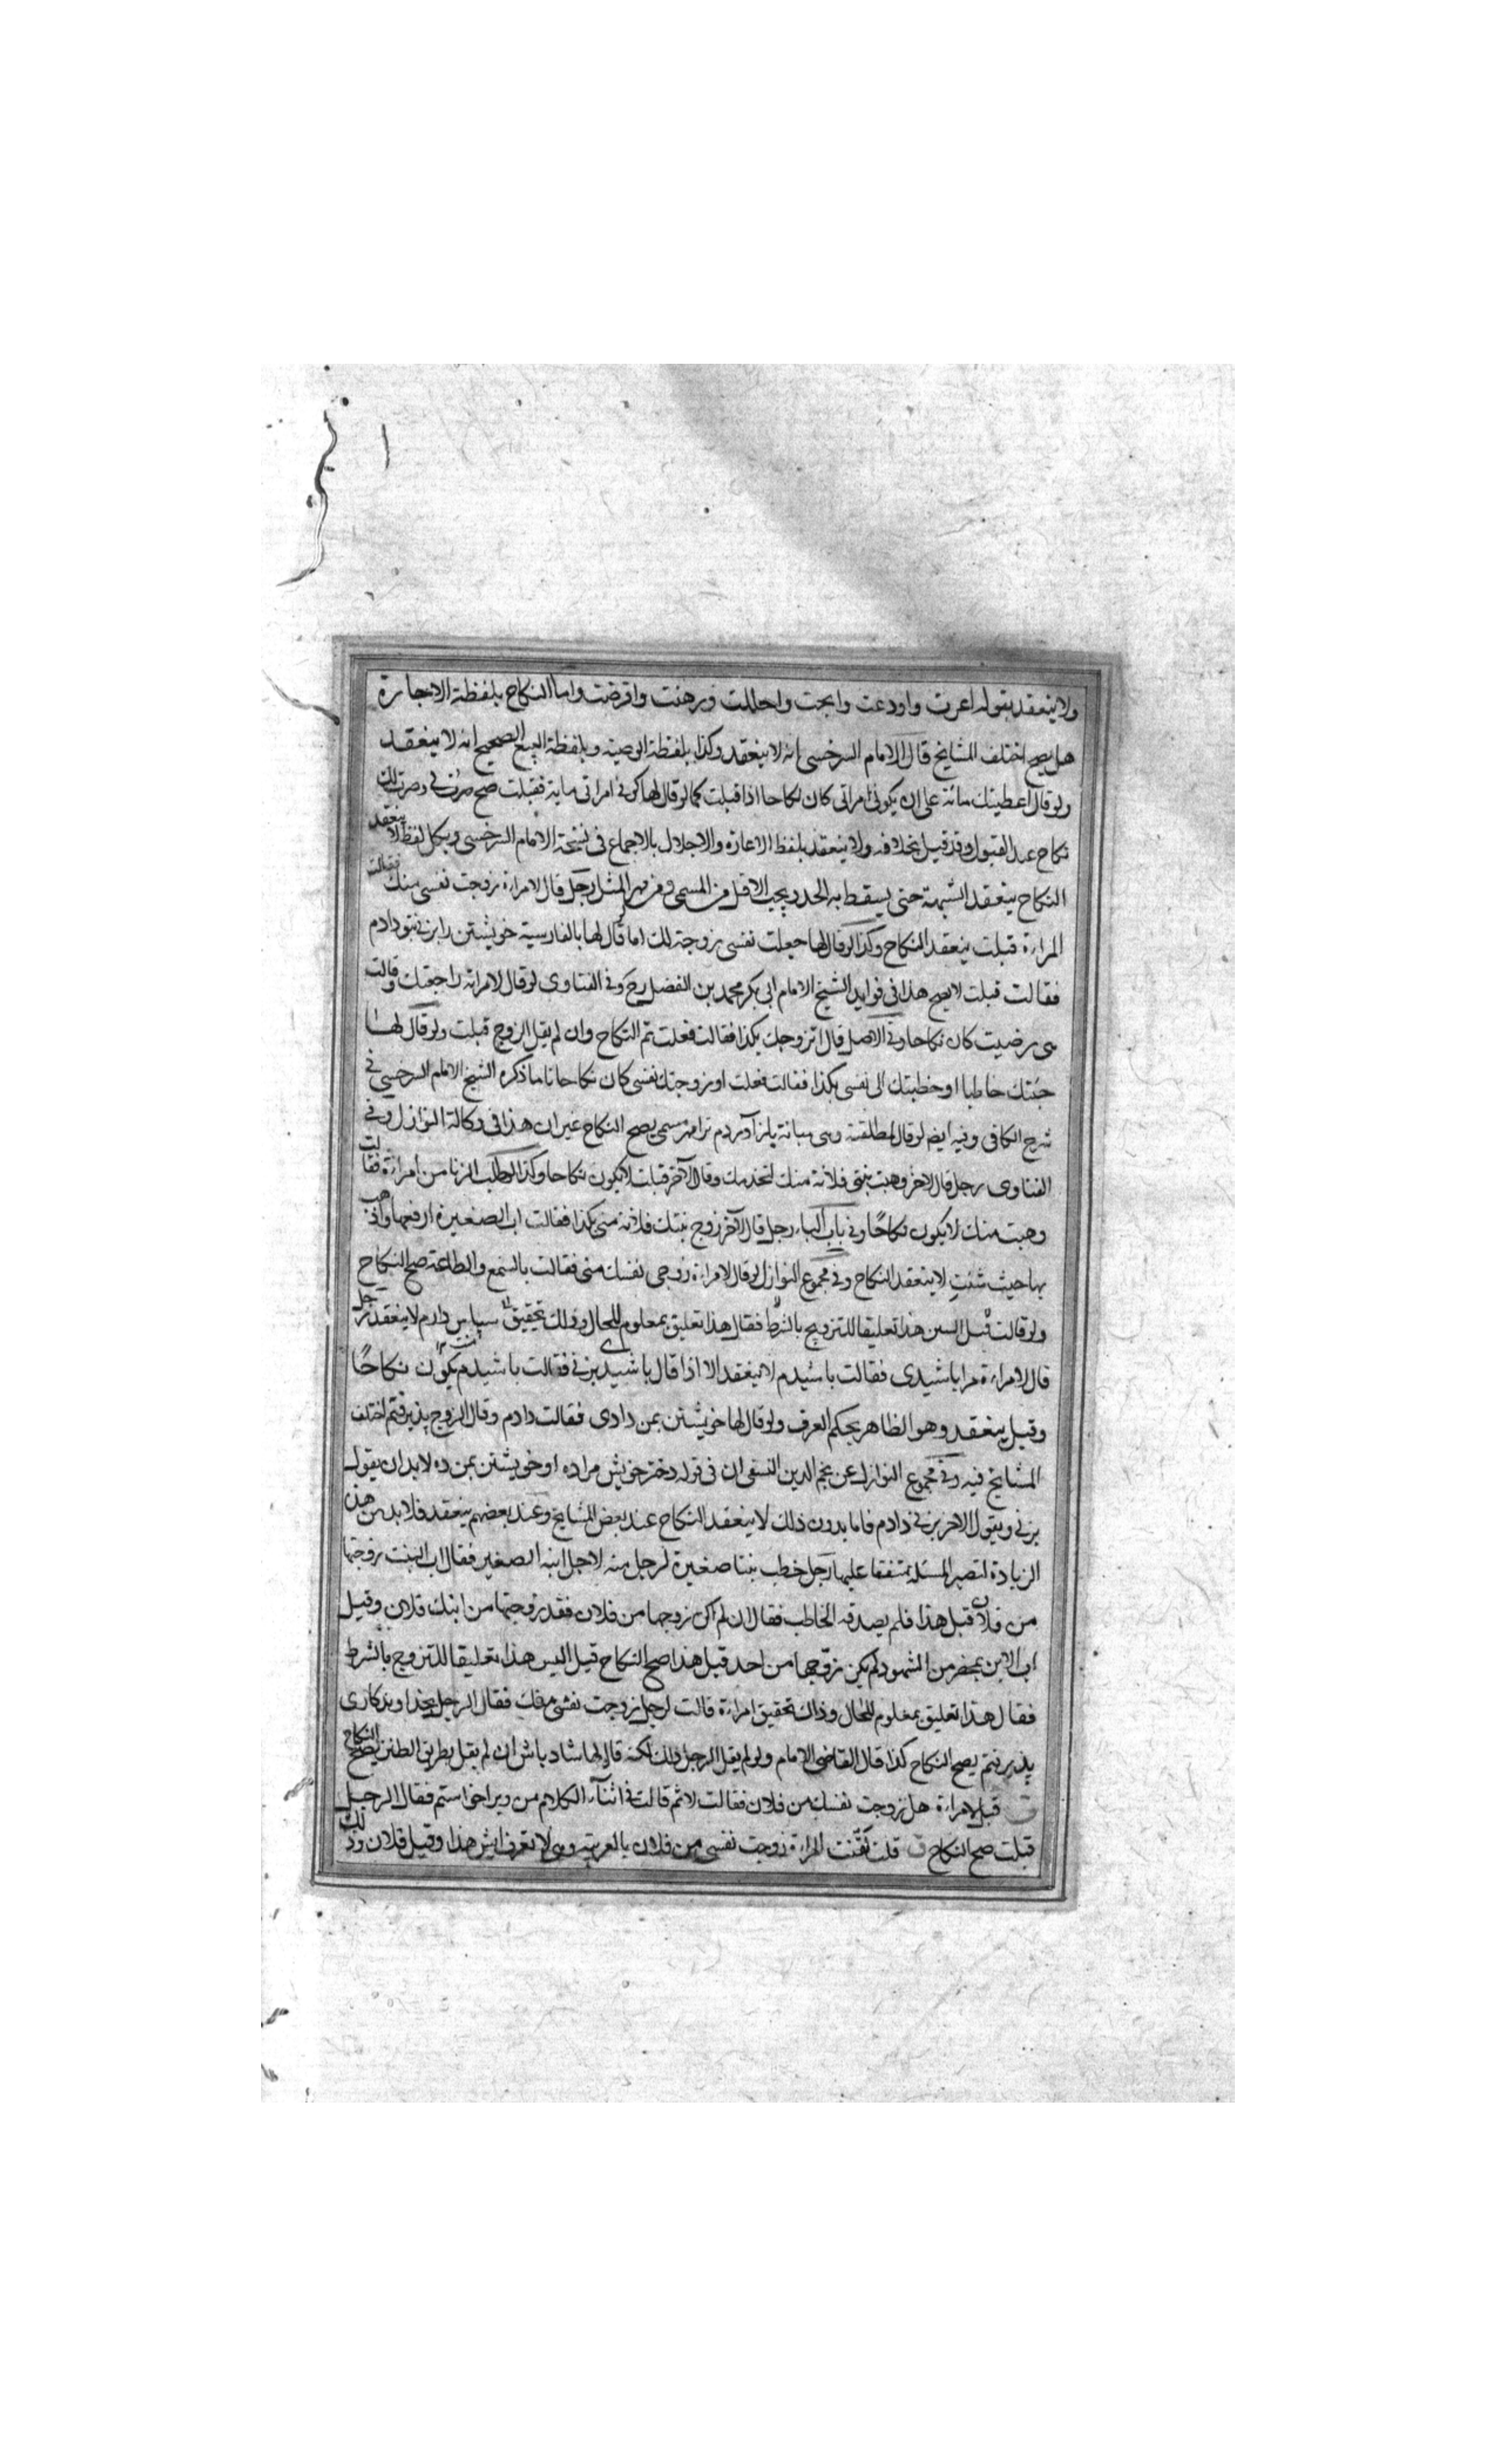 ولا ينعقد بقوله اعرت واودعت وابحت واحللت ورهنت واقرضت واما النكاح بلفظة الاجارة
هل يصح اختلف المشايخ قال الامام السرخسي انه لا ينعقد وكذا بلفظة الوصية وبلفظة البيع الصحيح انه لا ينعقد
ولو قال اعطيتك مائة على ان يكوني امراتي كان نكاحا اذا قبلت كما لو قال لها كوني امراتي بماية فقبلت صح صرت لي وصرت لك
نكاح عند القبول وقد قيل بخلافه ولا ينعقد بلفظ الاعارة والاحلال بالاجماع في نسخة الامام السرخسي وبكل لفظ لا ينعقد
النكاح ينعقد الشبهة حتى يسقط به الحد ويجب الاقل من المسمى ومن مهر المثل رجل قال لامراءة زوجت نفسي منك فقالت
المراءة قبلت ينعقد النكاح وكذا لو قال لها جعلت نفسي زوجة لك اما لو قال لها بالفارسية خويشتن را بزني بتو دادم
فقالت قبلت لا يصح هذا في فوايد الشيخ الامام ابي بكر محمد بن الفضل رح وفي الفتاوى لو قال لامراته راجعتك وقالت
هي رضيت كان نكاحا وفي الاصل قال اتزوجك بكذا فقالت فعلت تم النكاح وان لم يقل الزوج قبلت ولو قال لها
جئتك خاطبا او خطبتك الى نفسي بكذا فقالت فعلت او زوجتك نفسي كان نكاحا تاما ذكره الشيخ الامام السرخسي في
شرح الكافي وفيه ايضا لو قال لمطلقته وهي مبانة باز آوردم ترا بمهر مسمى يصح النكاح غير ان هذا في وكالة النوازل وفي
الفتاوى رجل قال لاخر وهبت بنتي فلانة منك لتخدمك وقال الآخر قبلت لا يكون نكاحا وكذا لو طلب الزنا من امراءة فقالت
وهبت منك لا يكون نكاحًا وفي باب الباء رجل قال لآخر زوج بنتك فلانة مني بكذا فقالت اب الصغيرة ارفعها واذهب
بها حيث شئت لا ينعقد النكاح وفي مجموع النوازل لو قال لامراءة زوجي نفسك مني فقالت بالسمع والطاعة صح النكاح
ولو قالت قبل السن هذا تعليقا للتزويج بالشرط فقال هذا تعليق بمعلوم للحال وذلك تحقيق سپاس دارم لا ينعقد رجل
قال لامراءة مرا باشيدى فقالت باشيدم لا ينعقد الا اذا قال باشيد بزني فقالت باشيدم يكون نكاحًا
وقيل ينعقد وهو الظاهر بحكم العرف ولو قال لها خويشتن بمن دادى فقالت دادم وقال الزوج پذيرفتم اختلف
المشايخ فيه وفي مجموع النوازل عن نجم الدين النسفي ان في قوله دختر خويش مرا ده او خويشتن بمن ده لا بد ان يقول
بزني ويقول الاخر بزني دادم فاما بدون ذلك لا ينعقد النكاح عند بعض المشايخ وعند بعضهم ينعقد فلا بد من هذه
الزيادة لتصير المسئلة متفقا عليها رجل خطب بنتا صغيرة لرجل منه لاجل ابنه الصغير فقال اب البنت زوجتها
من فلان قبل هذا فلم يصدقه الخاطب فقال ان لم اكن زوجها من فلان فقد زوجتها من ابنك فلان وقيل
اب الابن بمحضر من الشهود لم يكن زوجها من احد قبل هذا صح النكاح قيل اليس هذا تعليقا للتزوج بالشرط
فقال هذا تعليق بمعلوم للحال وذاك تحقيق امراءة قالت لرجل زوجت نفسي منك فقال الرجل بخداوندكارى
پذيرفتم يصح النكاح كذا قال القاضي الامام ولو لم يقل الرجل ذلك لكنه قال لها شاد باش ان لم يقل بطريق الطنز يصح النكاح
ق قيل لامراءة هل زوجت نفسك من فلان فقالت لا ثم قالت في اثناء الكلام من ويرا خواستم فقال الرجل
قبلت صح النكاح ق قلت لقنت المراءة زوجت نفسي من فلان بالعربية وهي لا تعرف ايش هذا وقيل فلان وذلك